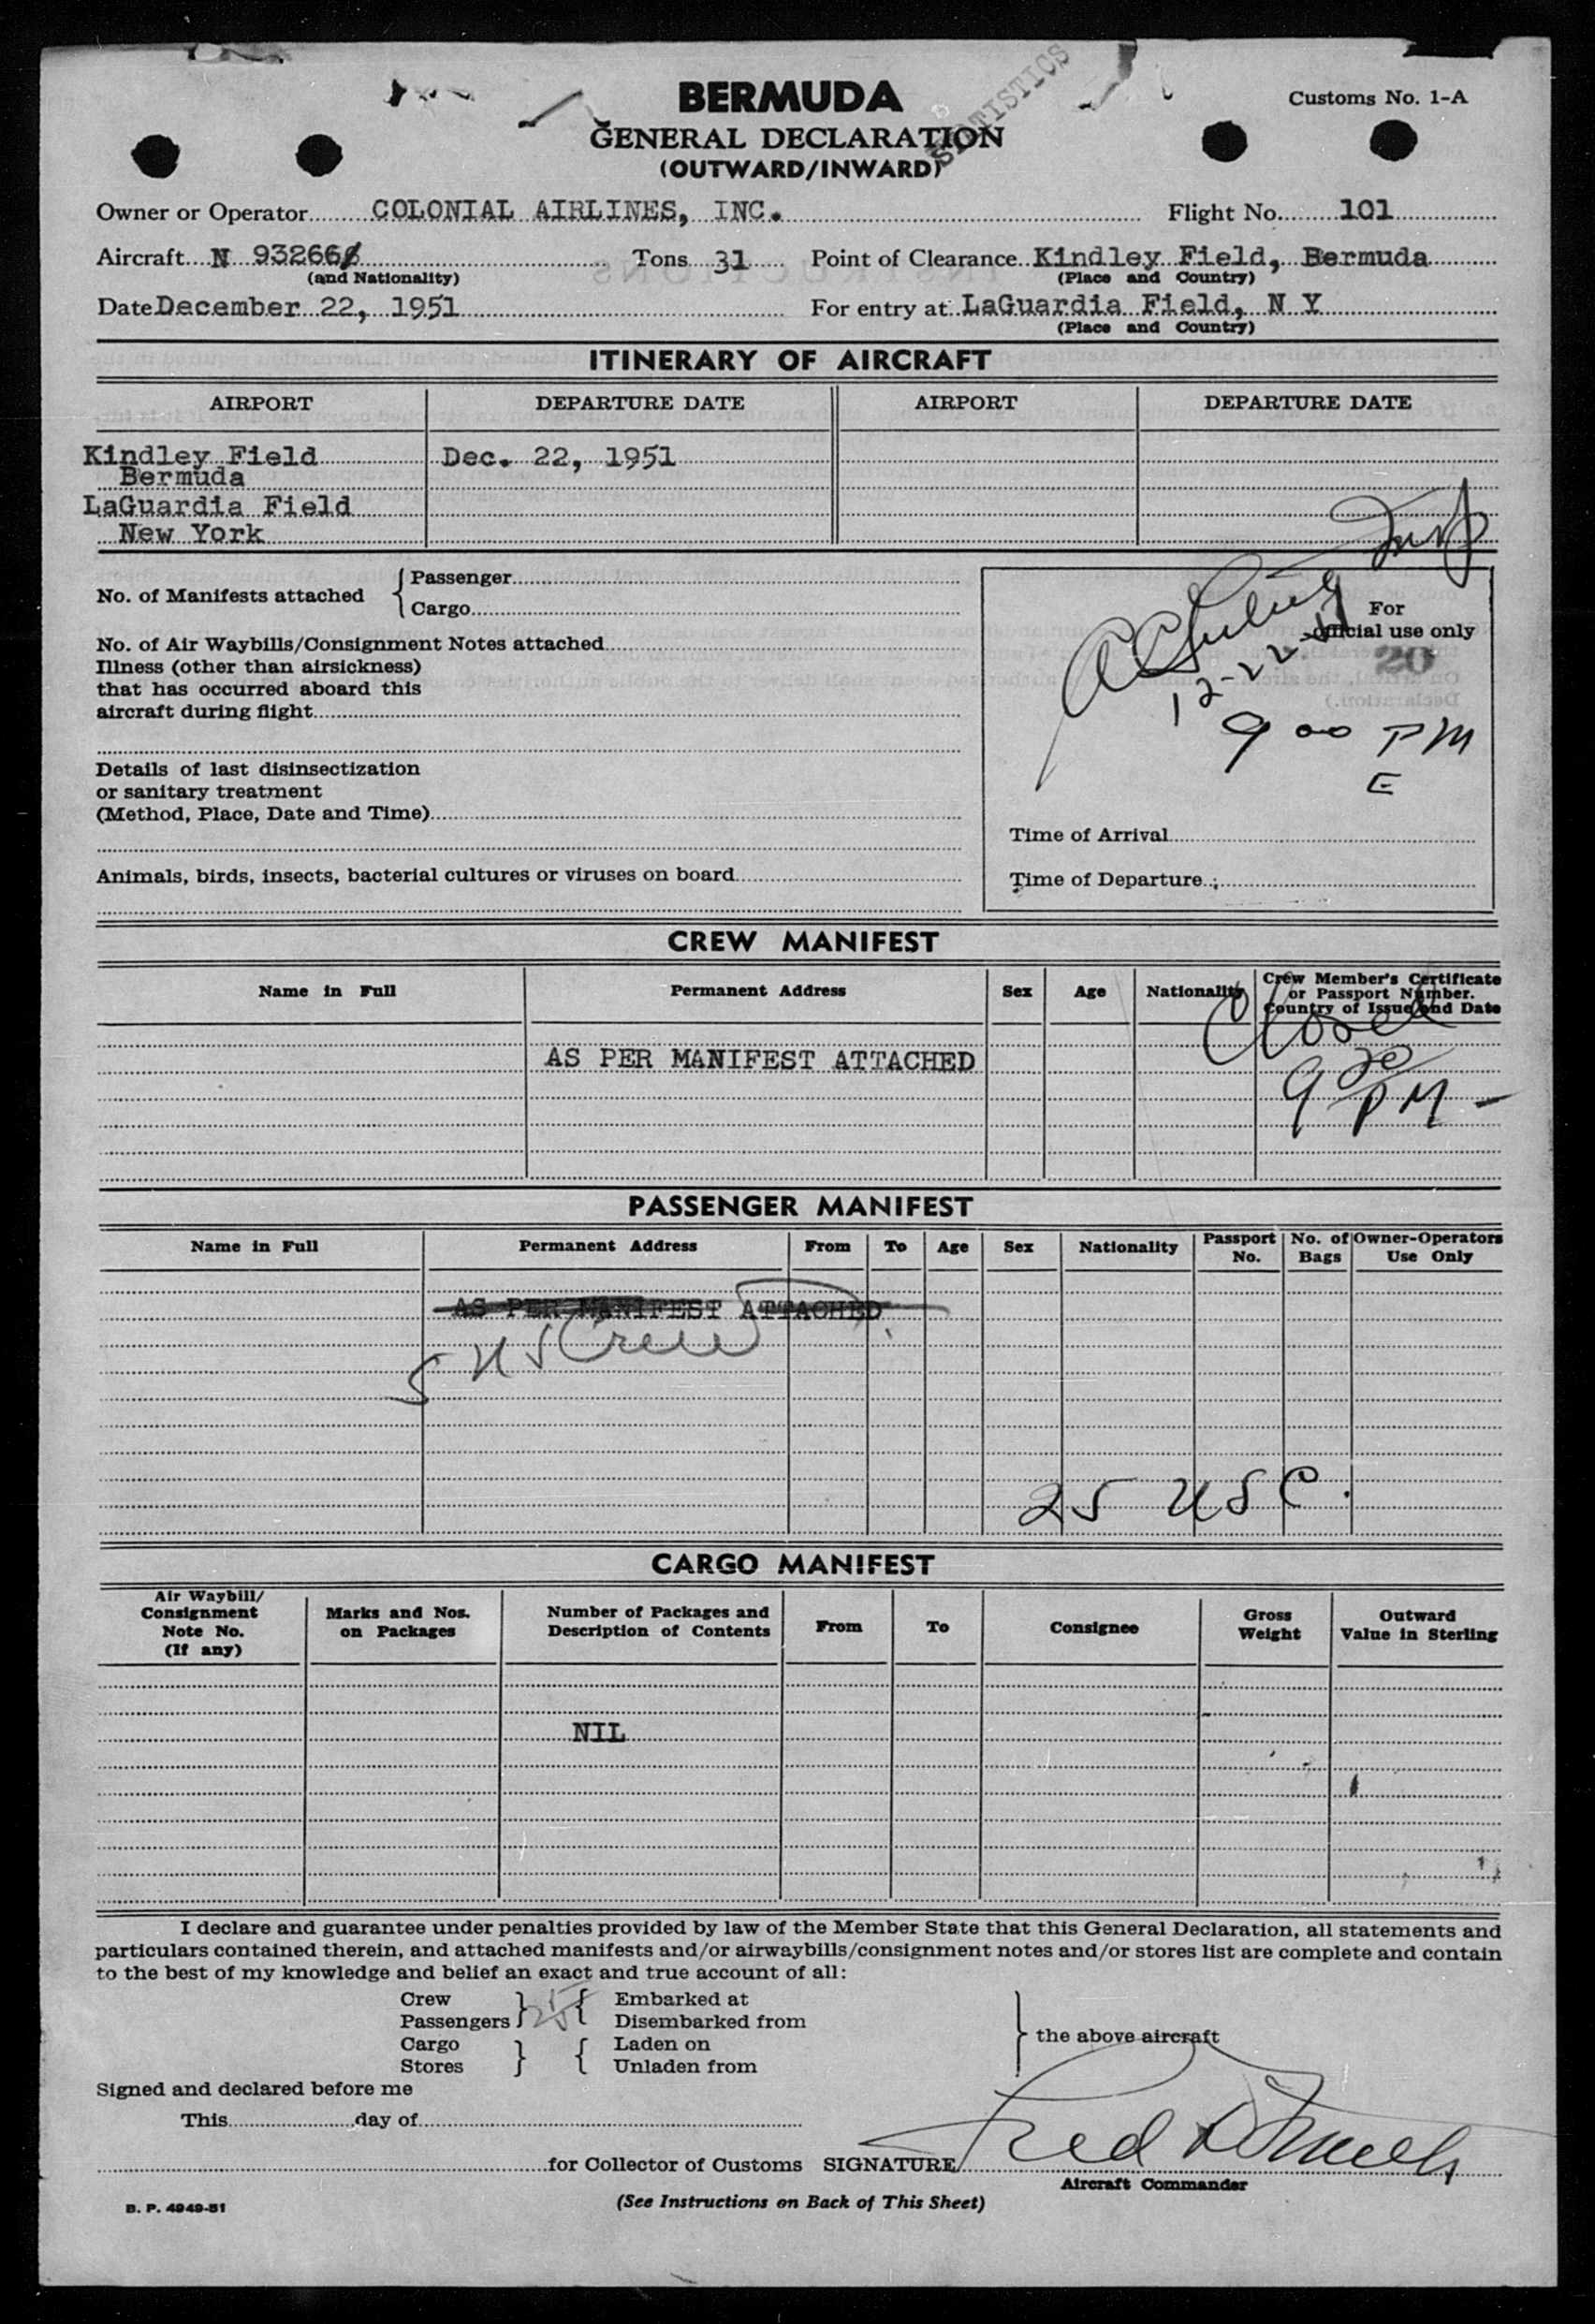 BERMUDA
Customs No. 1-A
STATISTICS
GENERAL DECLARATION
(OUTWARD/INWARD)
Owner or Operator COLONIAL AIRLINES, INC. Flight No. 101
Aircraft N 93266 Tons 31 Point of Clearance Kindley Field, Bermuda
(and Nationality) (Place and Country)
Date December 22, 1951 For entry at LaGuardia Field, N Y
(Place and Country)
ITINERARY OF AIRCRAFT
AIRPORT DEPARTURE DATE AIRPORT DEPARTURE DATE
Kindley Field Dec. 22, 1951
Bermuda
LaGuardia Field
New York
No. of Manifests attached { Passenger
Cargo
For
official use only
No. of Air Waybills/Consignment Notes attached
20
Illness (other than airsickness)
that has occurred aboard this
aircraft during flight
12-22-51
9 00 PM
E
Details of last disinsectization
or sanitary treatment
(Method, Place, Date and Time)
Time of Arrival
Animals, birds, insects, bacterial cultures or viruses on board
Time of Departure
CREW MANIFEST
Name in Full Permanent Address Sex Age Nationality Crew Member's Certificate or Passport Number. Country of Issue and Date
Closed
AS PER MANIFEST ATTACHED
9 20 PM -
PASSENGER MANIFEST
Name in Full Permanent Address From To Age Sex Nationality Passport No. No. of Bags Owner-Operators Use Only
AS PER MANIFEST ATTACHED
5 US Crew
25 USC.
CARGO MANIFEST
Air Waybill/ Consignment Note No. (If any) Marks and Nos. on Packages Number of Packages and Description of Contents From To Consignee Gross Weight Outward Value in Sterling
NIL
I declare and guarantee under penalties provided by law of the Member State that this General Declaration, all statements and
particulars contained therein, and attached manifests and/or airwaybills/consignment notes and/or stores list are complete and contain
to the best of my knowledge and belief an exact and true account of all:
Crew } 5 { Embarked at
Passengers } 25 { Disembarked from
} the above aircraft
Cargo } { Laden on
Stores } { Unladen from
Signed and declared before me
This day of
for Collector of Customs SIGNATURE Fred
Aircraft Commander
B. P. 4949-51
(See Instructions on Back of This Sheet)